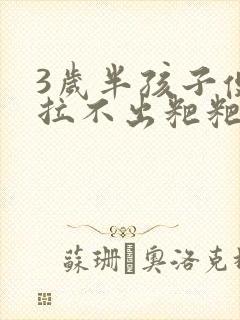 3歲半孩子
拉不出粑粑
蘇珊 奧洛克